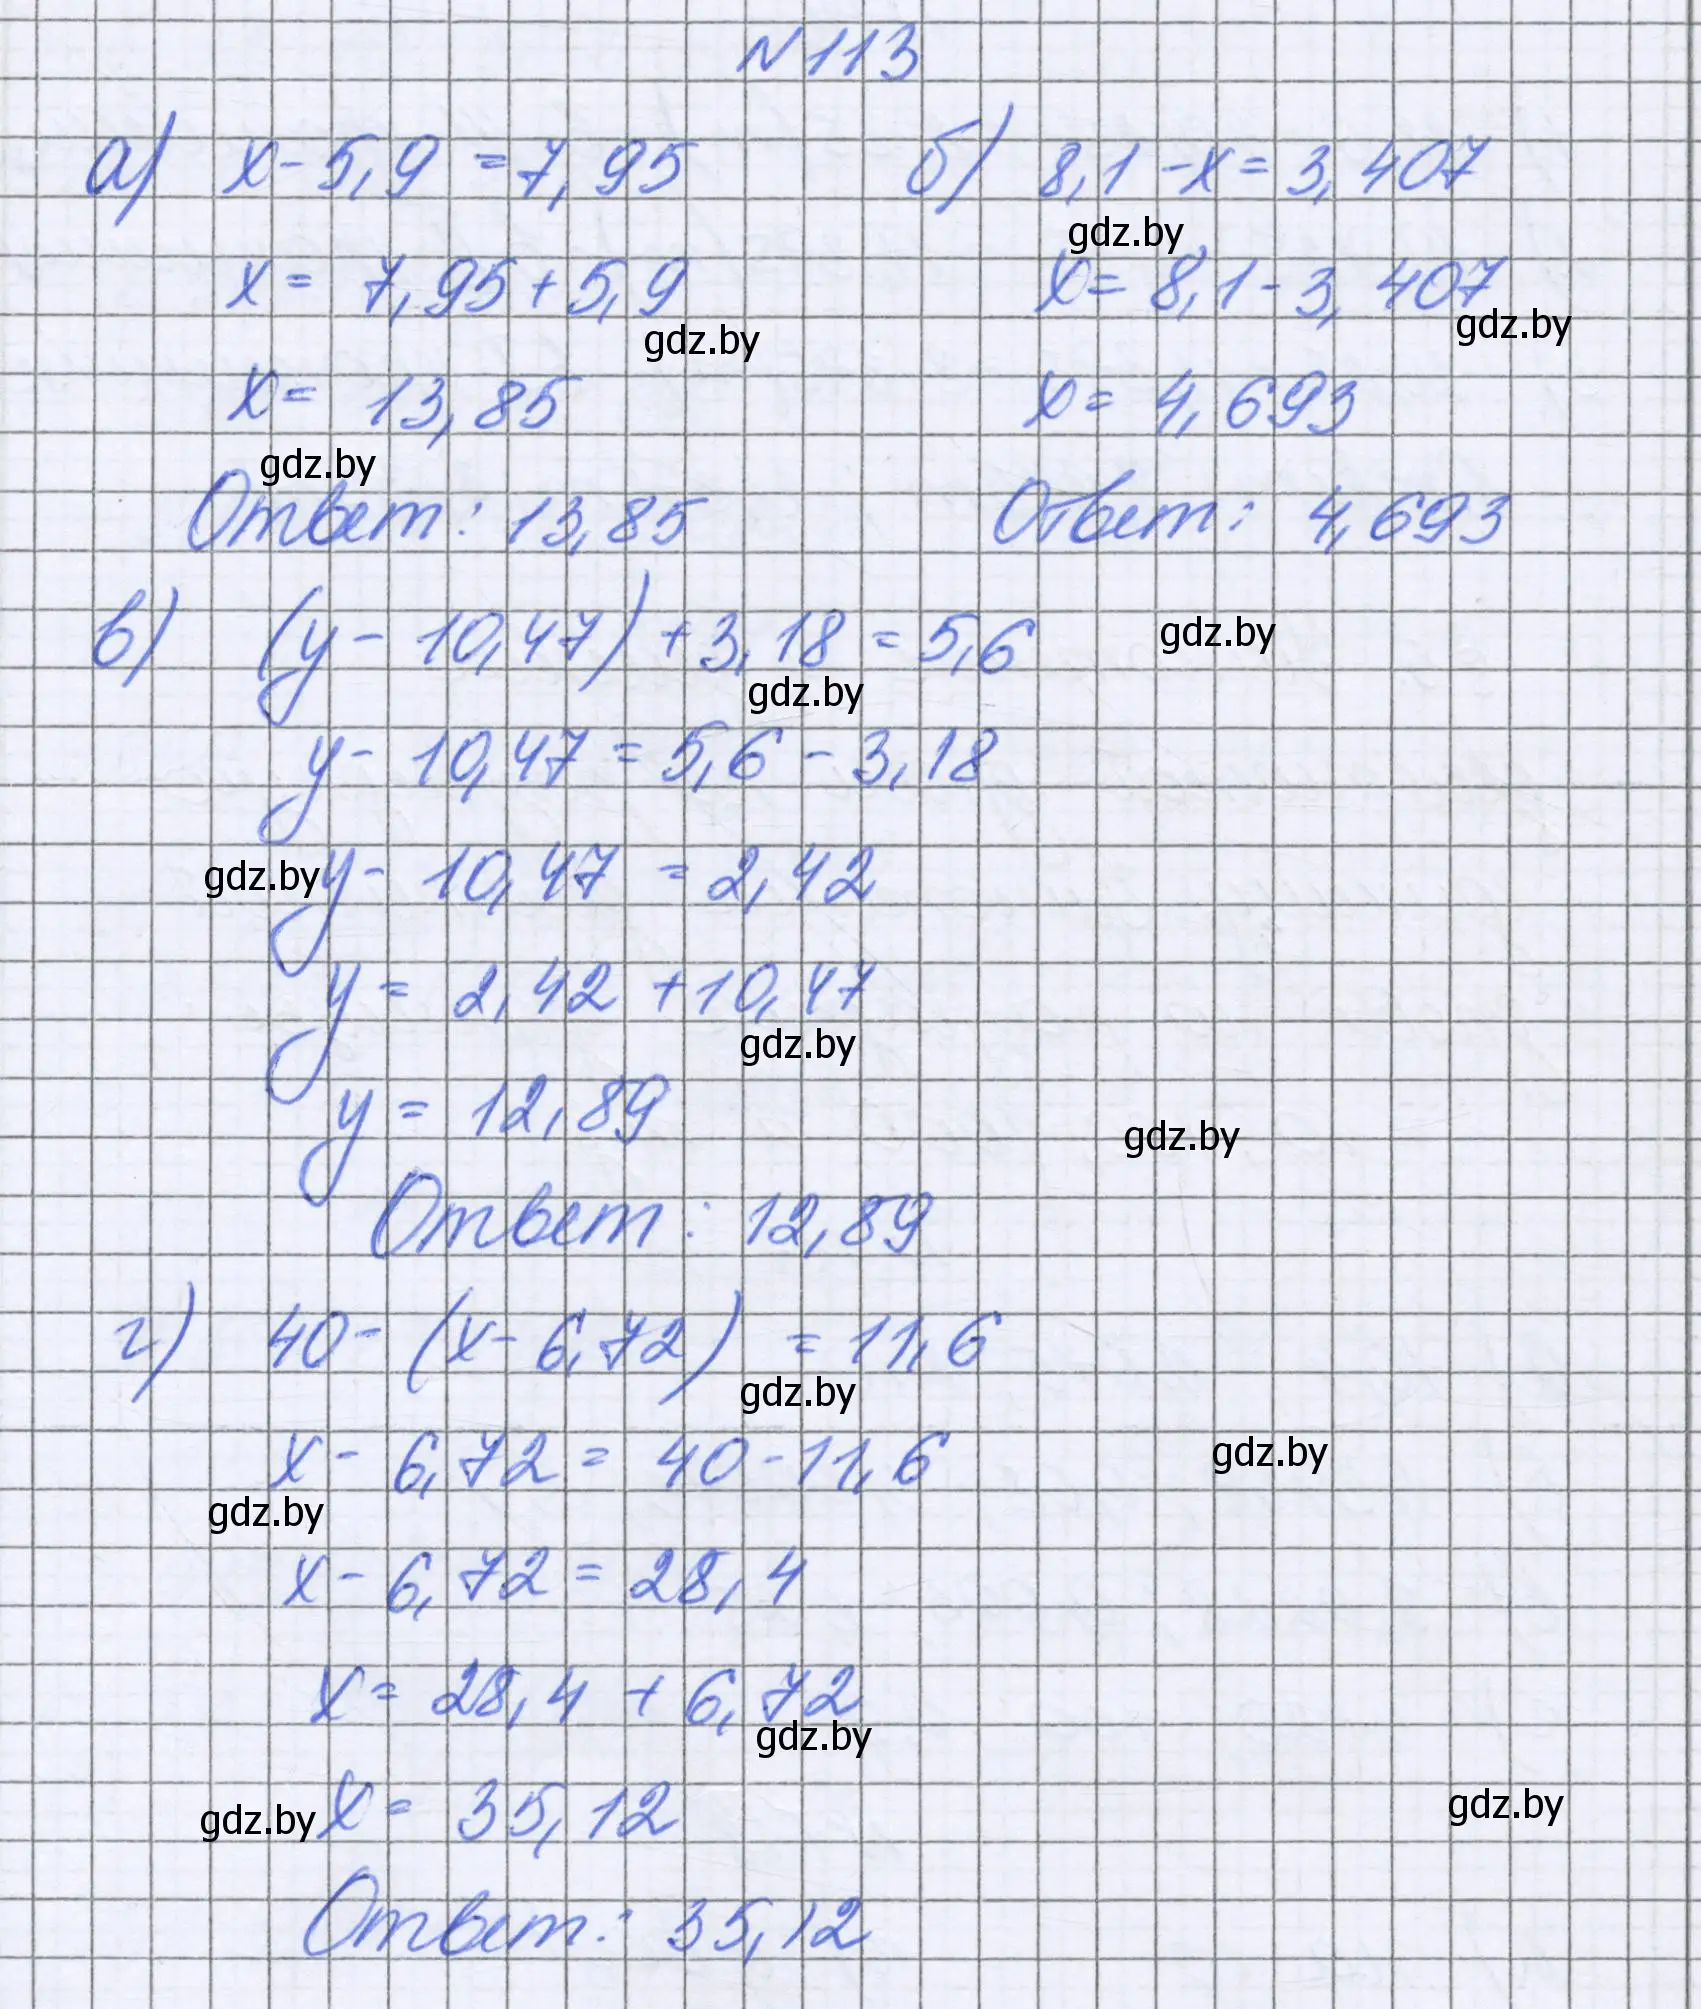 N113
а) x - 5,9 = 7,95
x = 7,95 + 5,9
gdz.by
x = 13,85
gdz.by
Ответ: 13,85
б) 8,1 - x = 3,407
gdz.by
x = 8,1 - 3,407
gdz.by
x = 4,693
Ответ: 4,693
в) (y - 10,47) + 3,18 = 5,6
gdz.by
gdz.by
y - 10,47 = 5,6 - 3,18
gdz.by
y - 10,47 = 2,42
y = 2,42 + 10,47
gdz.by
y = 12,89
gdz.by
Ответ: 12,89
г) 40 - (x - 6,72) = 11,6
gdz.by
x - 6,72 = 40 - 11,6
gdz.by
gdz.by
x - 6,72 = 28,4
x = 28,4 + 6,72
gdz.by
gdz.by
x = 35,12
gdz.by
Ответ: 35,12